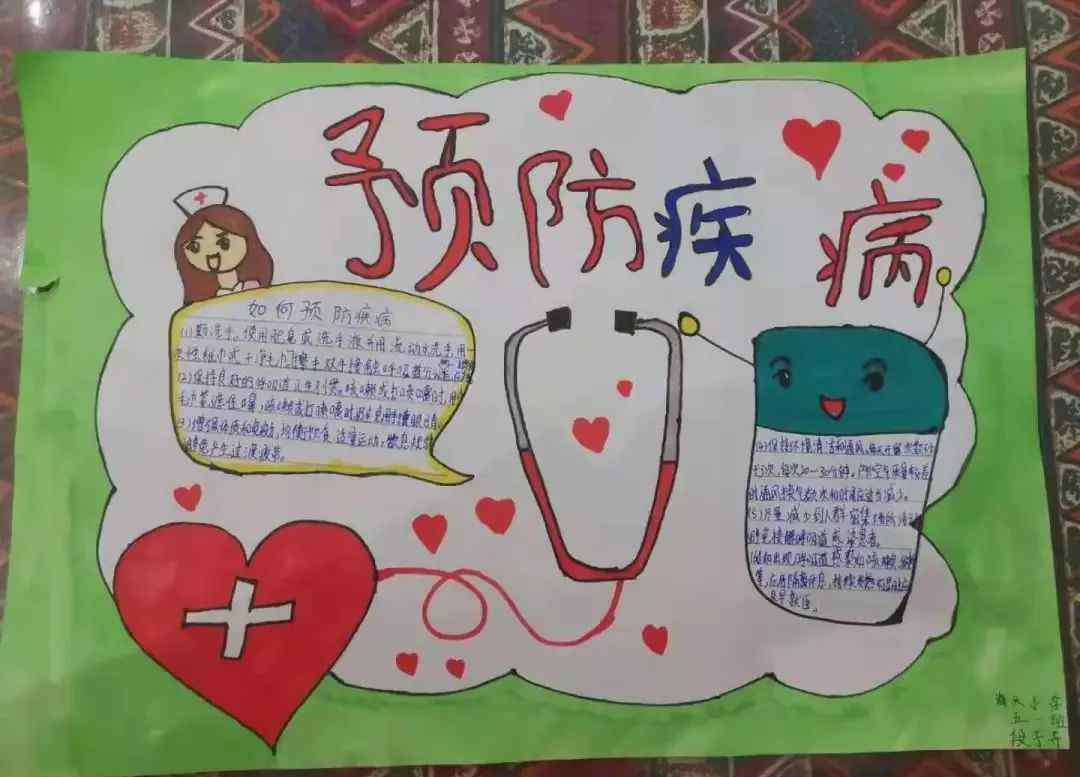 预防疾病
如何预防疾病
(1)勤洗手。使用肥皂或洗手液并用流动水洗手,用一
次性纸巾或干净毛巾擦手。双手接触呼吸道分泌
(2)保持良好的呼吸道卫生习惯。咳嗽或打喷嚏时,用
毛巾等遮住口鼻,咳嗽或打喷嚏时
(3)增强体质和免疫力,均衡饮食、适量运动、作息规律
避免产生过度疲劳。
(4)保持环境清洁和通风。每天开窗次数不少
于3次,每次20-30分钟。户外空气质量较差
时通风换气频次和时间应适当减少。
(5)尽量减少到人群密集场所活动
避免接触呼吸道感染患者。
(6)如出现呼吸道感染如咳嗽
等,应居家隔离休息,
及早就医。
小学
五一班
段子